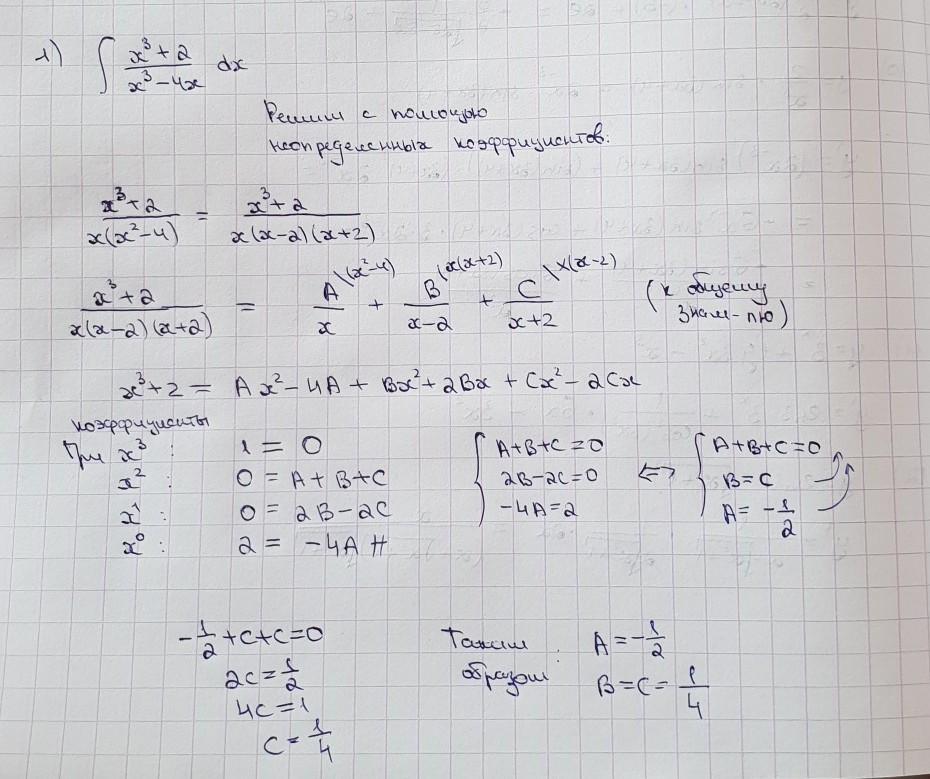 1) ∫ (x³ + 2)/(x³ − 4x) dx
Решим с помощью
неопределенных коэффициентов:
(x³ + 2)/(x(x² − 4)) = (x³ + 2)/(x(x − 2)(x + 2))
(x³ + 2)/(x(x − 2)(x + 2)) = A\(x² − 4)/x + B\x(x + 2)/(x − 2) + C\x(x − 2)/(x + 2) (к общему
знам-лю)
x³ + 2 = Ax² − 4A + Bx² + 2Bx + Cx² − 2Cx
коэффициенты
При x³ : 1 = 0
x² : 0 = A + B + C
x¹ : 0 = 2B − 2C
x⁰ : 2 = −4A
{ A + B + C = 0
2B − 2C = 0
−4A = 2
⇔
{ A + B + C = 0
B = C
A = −1/2
−1/2 + C + C = 0
2C = 1/2
4C = 1
C = 1/4
Таким
образом :
A = −1/2
B = C = 1/4